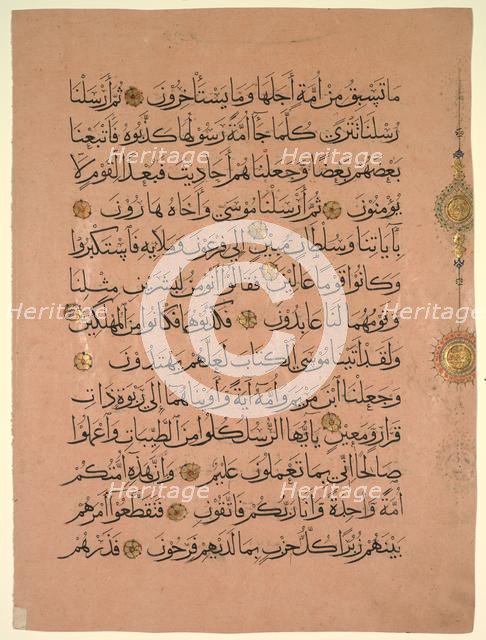 مَا تَسْبِقُ مِنْ أُمَّةٍ أَجَلَهَا وَمَا يَسْتَأْخِرُونَ ثُمَّ أَرْسَلْنَا
رُسُلَنَا تَتْرَىٰ كُلَّمَا جَاءَ أُمَّةً رَسُولُهَا كَذَّبُوهُ فَأَتْبَعْنَا
بَعْضَهُمْ بَعْضًا وَجَعَلْنَاهُمْ أَحَادِيثَ فَبُعْدًا لِقَوْمٍ لَا
يُؤْمِنُونَ ثُمَّ أَرْسَلْنَا مُوسَىٰ وَأَخَاهُ هَارُونَ
بِآيَاتِنَا وَسُلْطَانٍ مُبِينٍ إِلَىٰ فِرْعَوْنَ وَمَلَايِهِ فَاسْتَكْبَرُوا
وَكَانُوا قَوْمًا عَالِينَ فَقَالُوا أَنُؤْمِنُ لِبَشَرَيْنِ مِثْلِنَا
وَقَوْمُهُمَا لَنَا عَابِدُونَ فَكَذَّبُوهُمَا فَكَانُوا مِنَ الْمُهْلَكِينَ
وَلَقَدْ آتَيْنَا مُوسَى الْكِتَابَ لَعَلَّهُمْ يَهْتَدُونَ
وَجَعَلْنَا ابْنَ مَرْيَمَ وَأُمَّهُ آيَةً وَآوَيْنَاهُمَا إِلَىٰ رَبْوَةٍ ذَاتِ
قَرَارٍ وَمَعِينٍ يَاأَيُّهَا الرُّسُلُ كُلُوا مِنَ الطَّيِّبَاتِ وَاعْمَلُوا
صَالِحًا إِنِّي بِمَا تَعْمَلُونَ عَلِيمٌ وَإِنَّ هَٰذِهِ أُمَّتُكُمْ
أُمَّةً وَاحِدَةً وَأَنَا رَبُّكُمْ فَاتَّقُونِ فَتَقَطَّعُوا أَمْرَهُمْ
بَيْنَهُمْ زُبُرًا كُلُّ حِزْبٍ بِمَا لَدَيْهِمْ فَرِحُونَ فَذَرْهُمْ